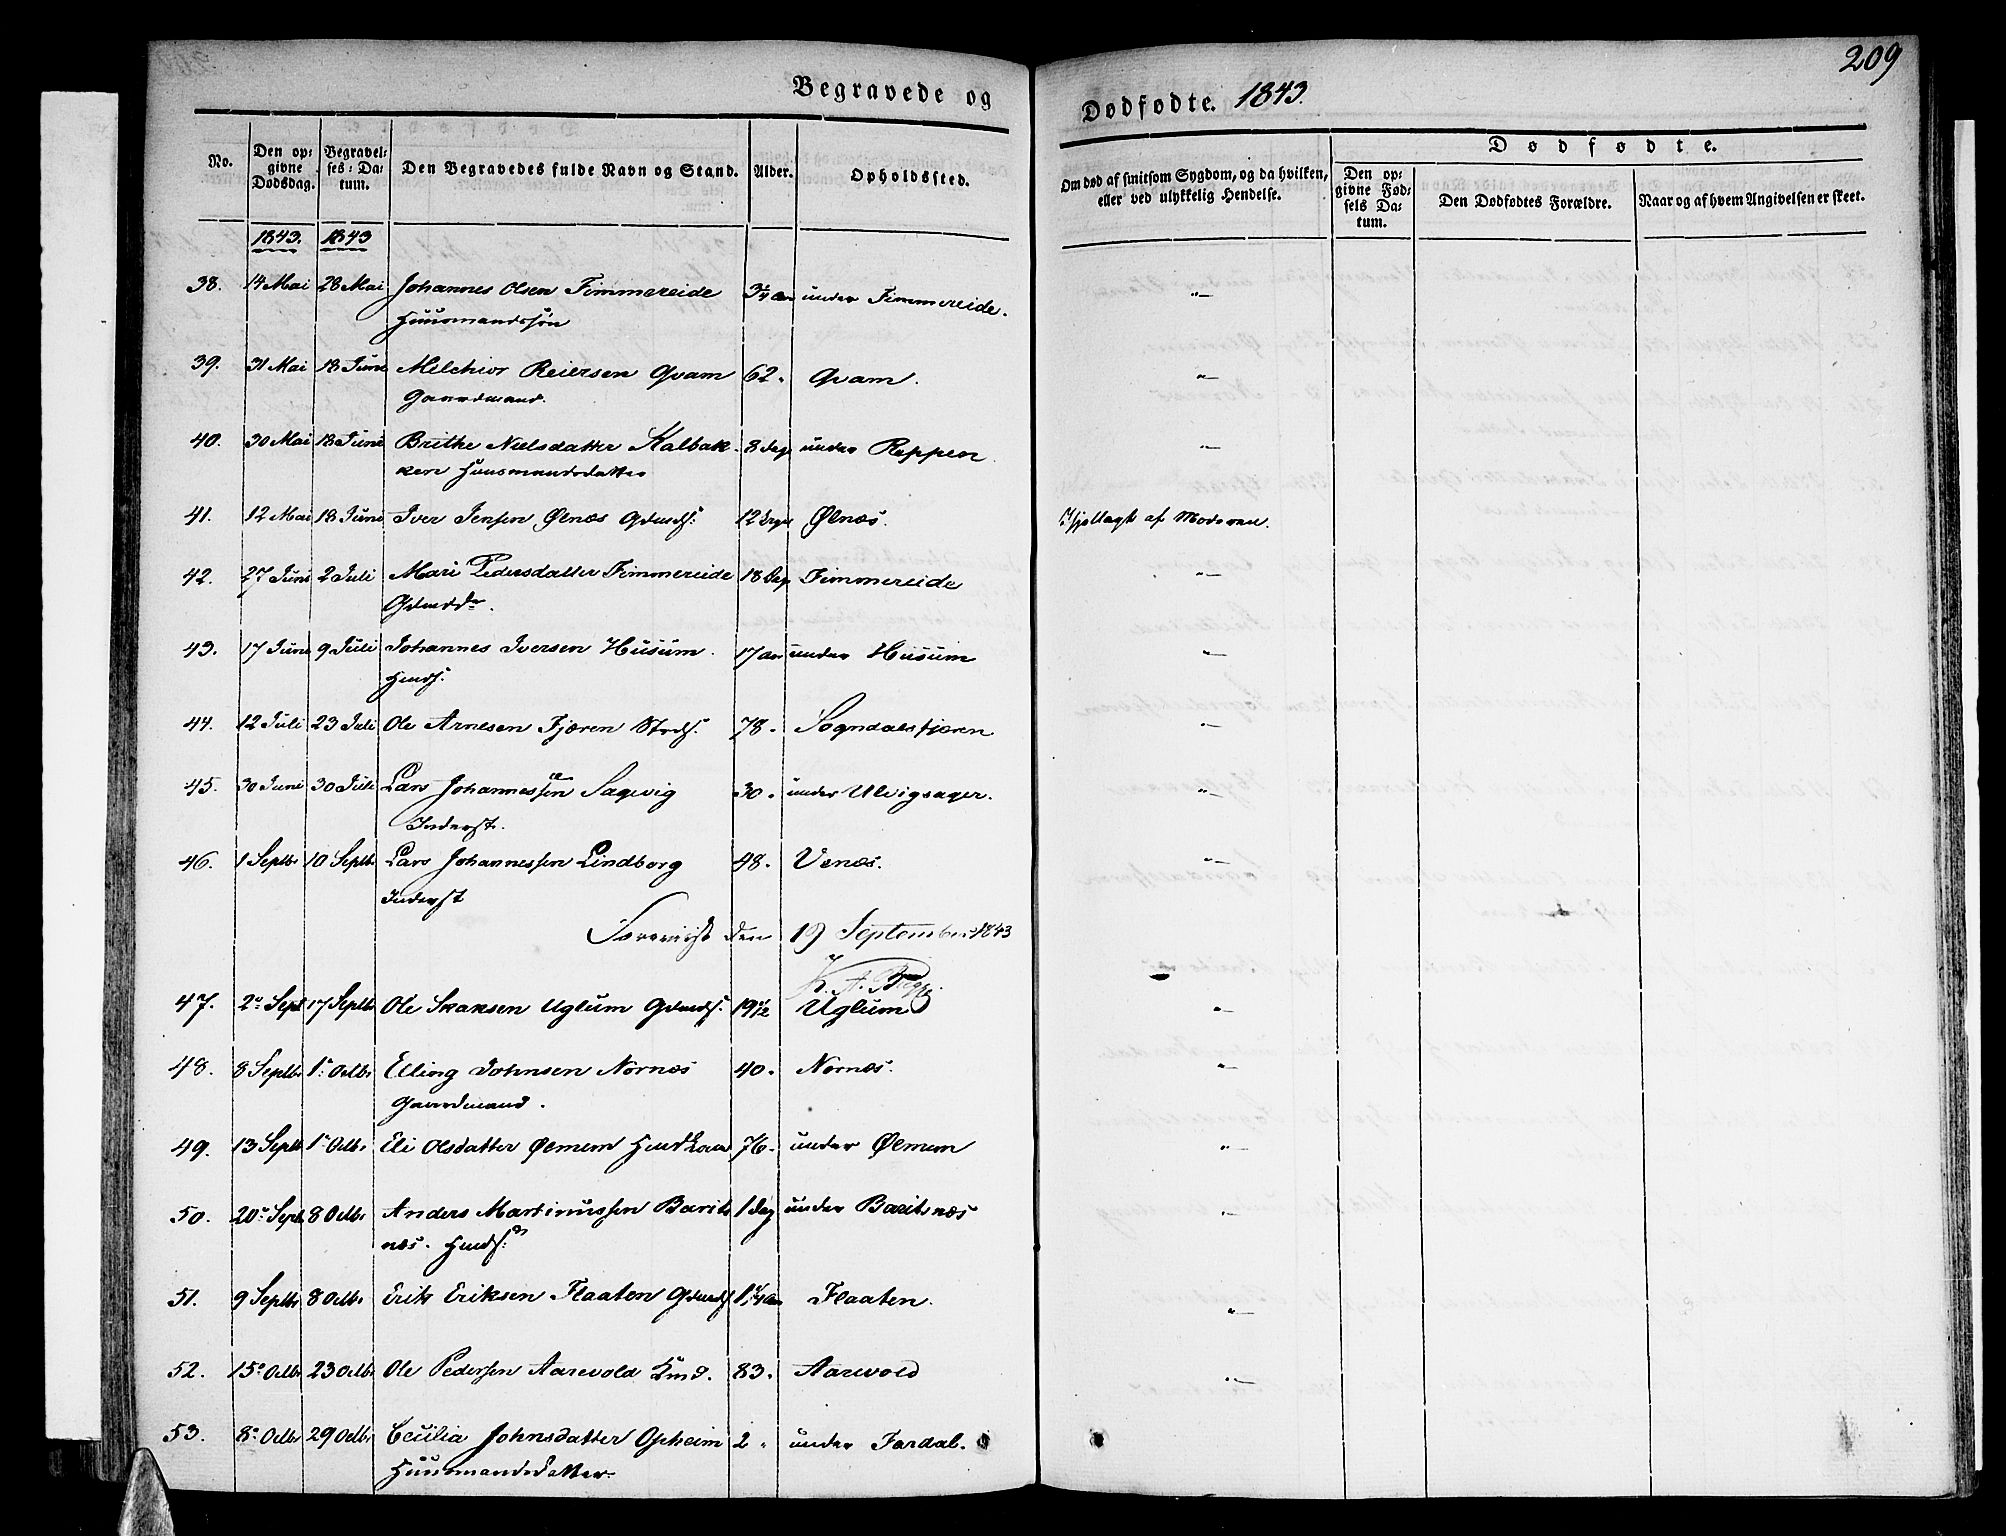 209
Begravede og
Dødfødte. 1843.
No.
Den opgivne Dødsdag.
Begravelses-Datum.
Den Begravedes fulde Navn og Stand.
Alder.
Opholdssted.
Om død af smitsom Sygdom, og da hvilken, eller ved ulykkelig Hendelse.
Dødfødte.
Den opgivne Fødsels Datum.
Den Dødfødtes Forældre.
Naar og af hvem Angivelsen er skeet.
1843. 1843
38. 14 Mai 28 Mai Johannes Olsen Fimmereide 3/4 Aar under Fimmereide. "
Huusmandssøn
39. 31 Mai 18 Juni Melchior Reiersen Qvam 62. Qvam. "
Gaardmand.
40. 30 Mai 18 Juni Brithe Nielsdatter Kalbak- 8 Dage under Reppen "
ken Huusmandsdatter
41. 12 Mai 18 Juni Iver Jensen Ølnæs Gdmds: 12 Øinæs. Ihjellagt af Moderen.
42. 27 Juni 2 Juli Mari Pedersdatter Fimmereide 18 Dag Fimmereide "
Gdmdd.
43. 17 Juni 9 Juli Johannes Iversen Husum. 17 Aar under Husum "
Hmds.
44. 12 Juli 23 Juli Ole Arnesen Fjæren 78. Sogndalsfjæren "
45. 30 Juni 30 Juli Lars Johannessen Sagevig 30. under Ulvigsager. "
Inderst.
46. 1 Septbr 10 Septbr Lars Johannessen Lindborg 48. Venæs. "
Inderst
den 19 September 1843
47. 2 Sept 17 Septbr Ole Skaksen Uglum Gdmds: 19 1/2 Uglum "
48. 8 Septbr 1. Octbr Elling Johnsen Nornæs 40. Nornæs. "
Gaardmand.
49. 13 Septb 1. Octbr Eli Olsdatter Ølmem Hmdkone 76. under Ølmem "
50. 20 Sept 8 Octbr Anders Martinussen Barits- 1 Dag under Baritsnæs "
næs. Hmds:
51. 9 Septbr 8 Octbr Erik Eriksen Flaaten Gdmds 1 1/4 Aar Flaaten. "
52. 15 Octbr 23 Octbr Ole Pedersen Aarevold 83. Aarevold "
53. 8 Octbr 29 Octbr Cecilia Johnsdatter Opheim 2. under Fardal.
Huusmandsdatter.